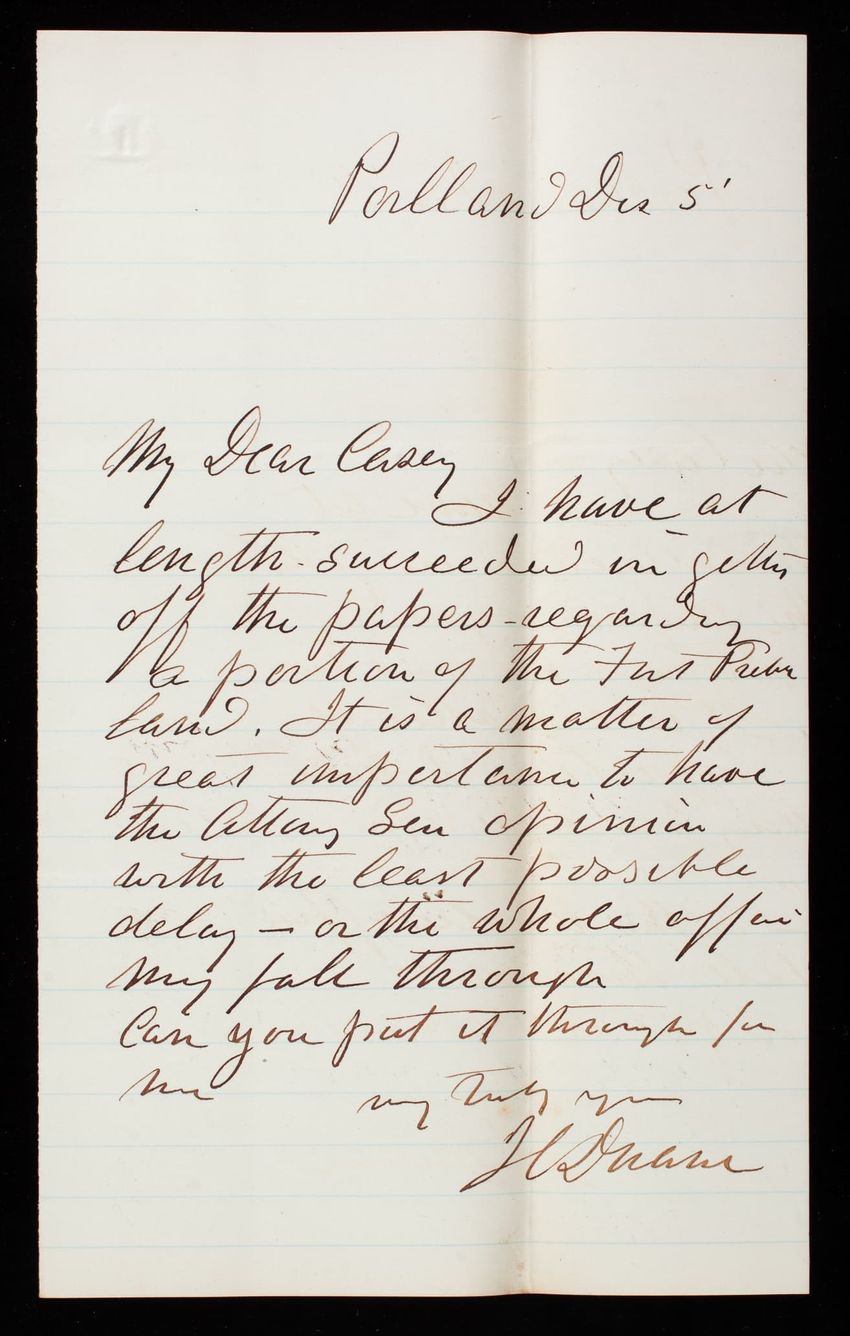 Portland Dec 5'
My Dear Casey
I have at
length succeeded in getting
off the papers - regarding
a portion of the Fort Preble
land. It is a matter of
great importance to have
the Attorny Gen opinion
with the least possible
delay — or the whole affair
may fall through
Can you put it through for
me
very truly yours
J C Duane